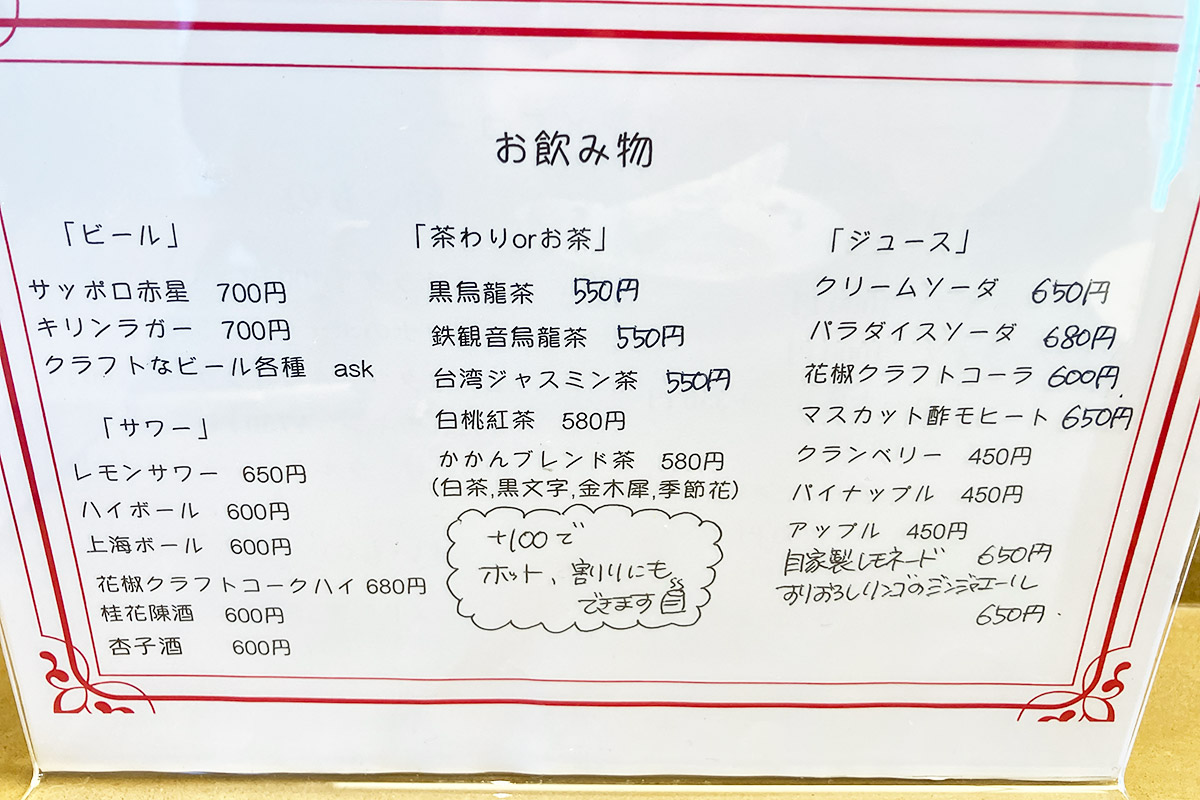 お飲み物
「ビール」
サッポロ赤星 700円
キリンラガー 700円
クラフトなビール各種 ask
「サワー」
レモンサワー 650円
ハイボール 600円
上海ボール 600円
花椒クラフトコークハイ 680円
桂花陳酒 600円
杏子酒 600円
「茶わりorお茶」
黒烏龍茶 550円
鉄観音烏龍茶 550円
台湾ジャスミン茶 550円
白桃紅茶 580円
かかんブレンド茶 580円
(白茶,黒文字,金木犀,季節花)
+100で
ホット、割りにも
できます
「ジュース」
クリームソーダ 650円
パラダイスソーダ 680円
花椒クラフトコーラ 600円
マスカット酢モヒート 650円
クランベリー 450円
パイナップル 450円
アップル 450円
自家製レモネード 650円
すりおろしリンゴのジンジャエール
650円